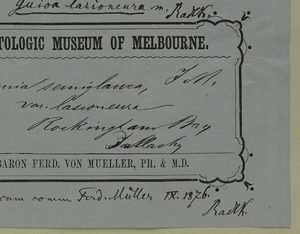 Guioa lasioneura m. Radlk.
TOLOGIC MUSEUM OF MELBOURNE.
nia semiglauca, F.M.
var. lasioneura
Rockingham Bay
Dallachy
BARON FERD. VON MUELLER, PH. & M.D.
comm. Ferd. Müller IX. 1876.
Radlk.